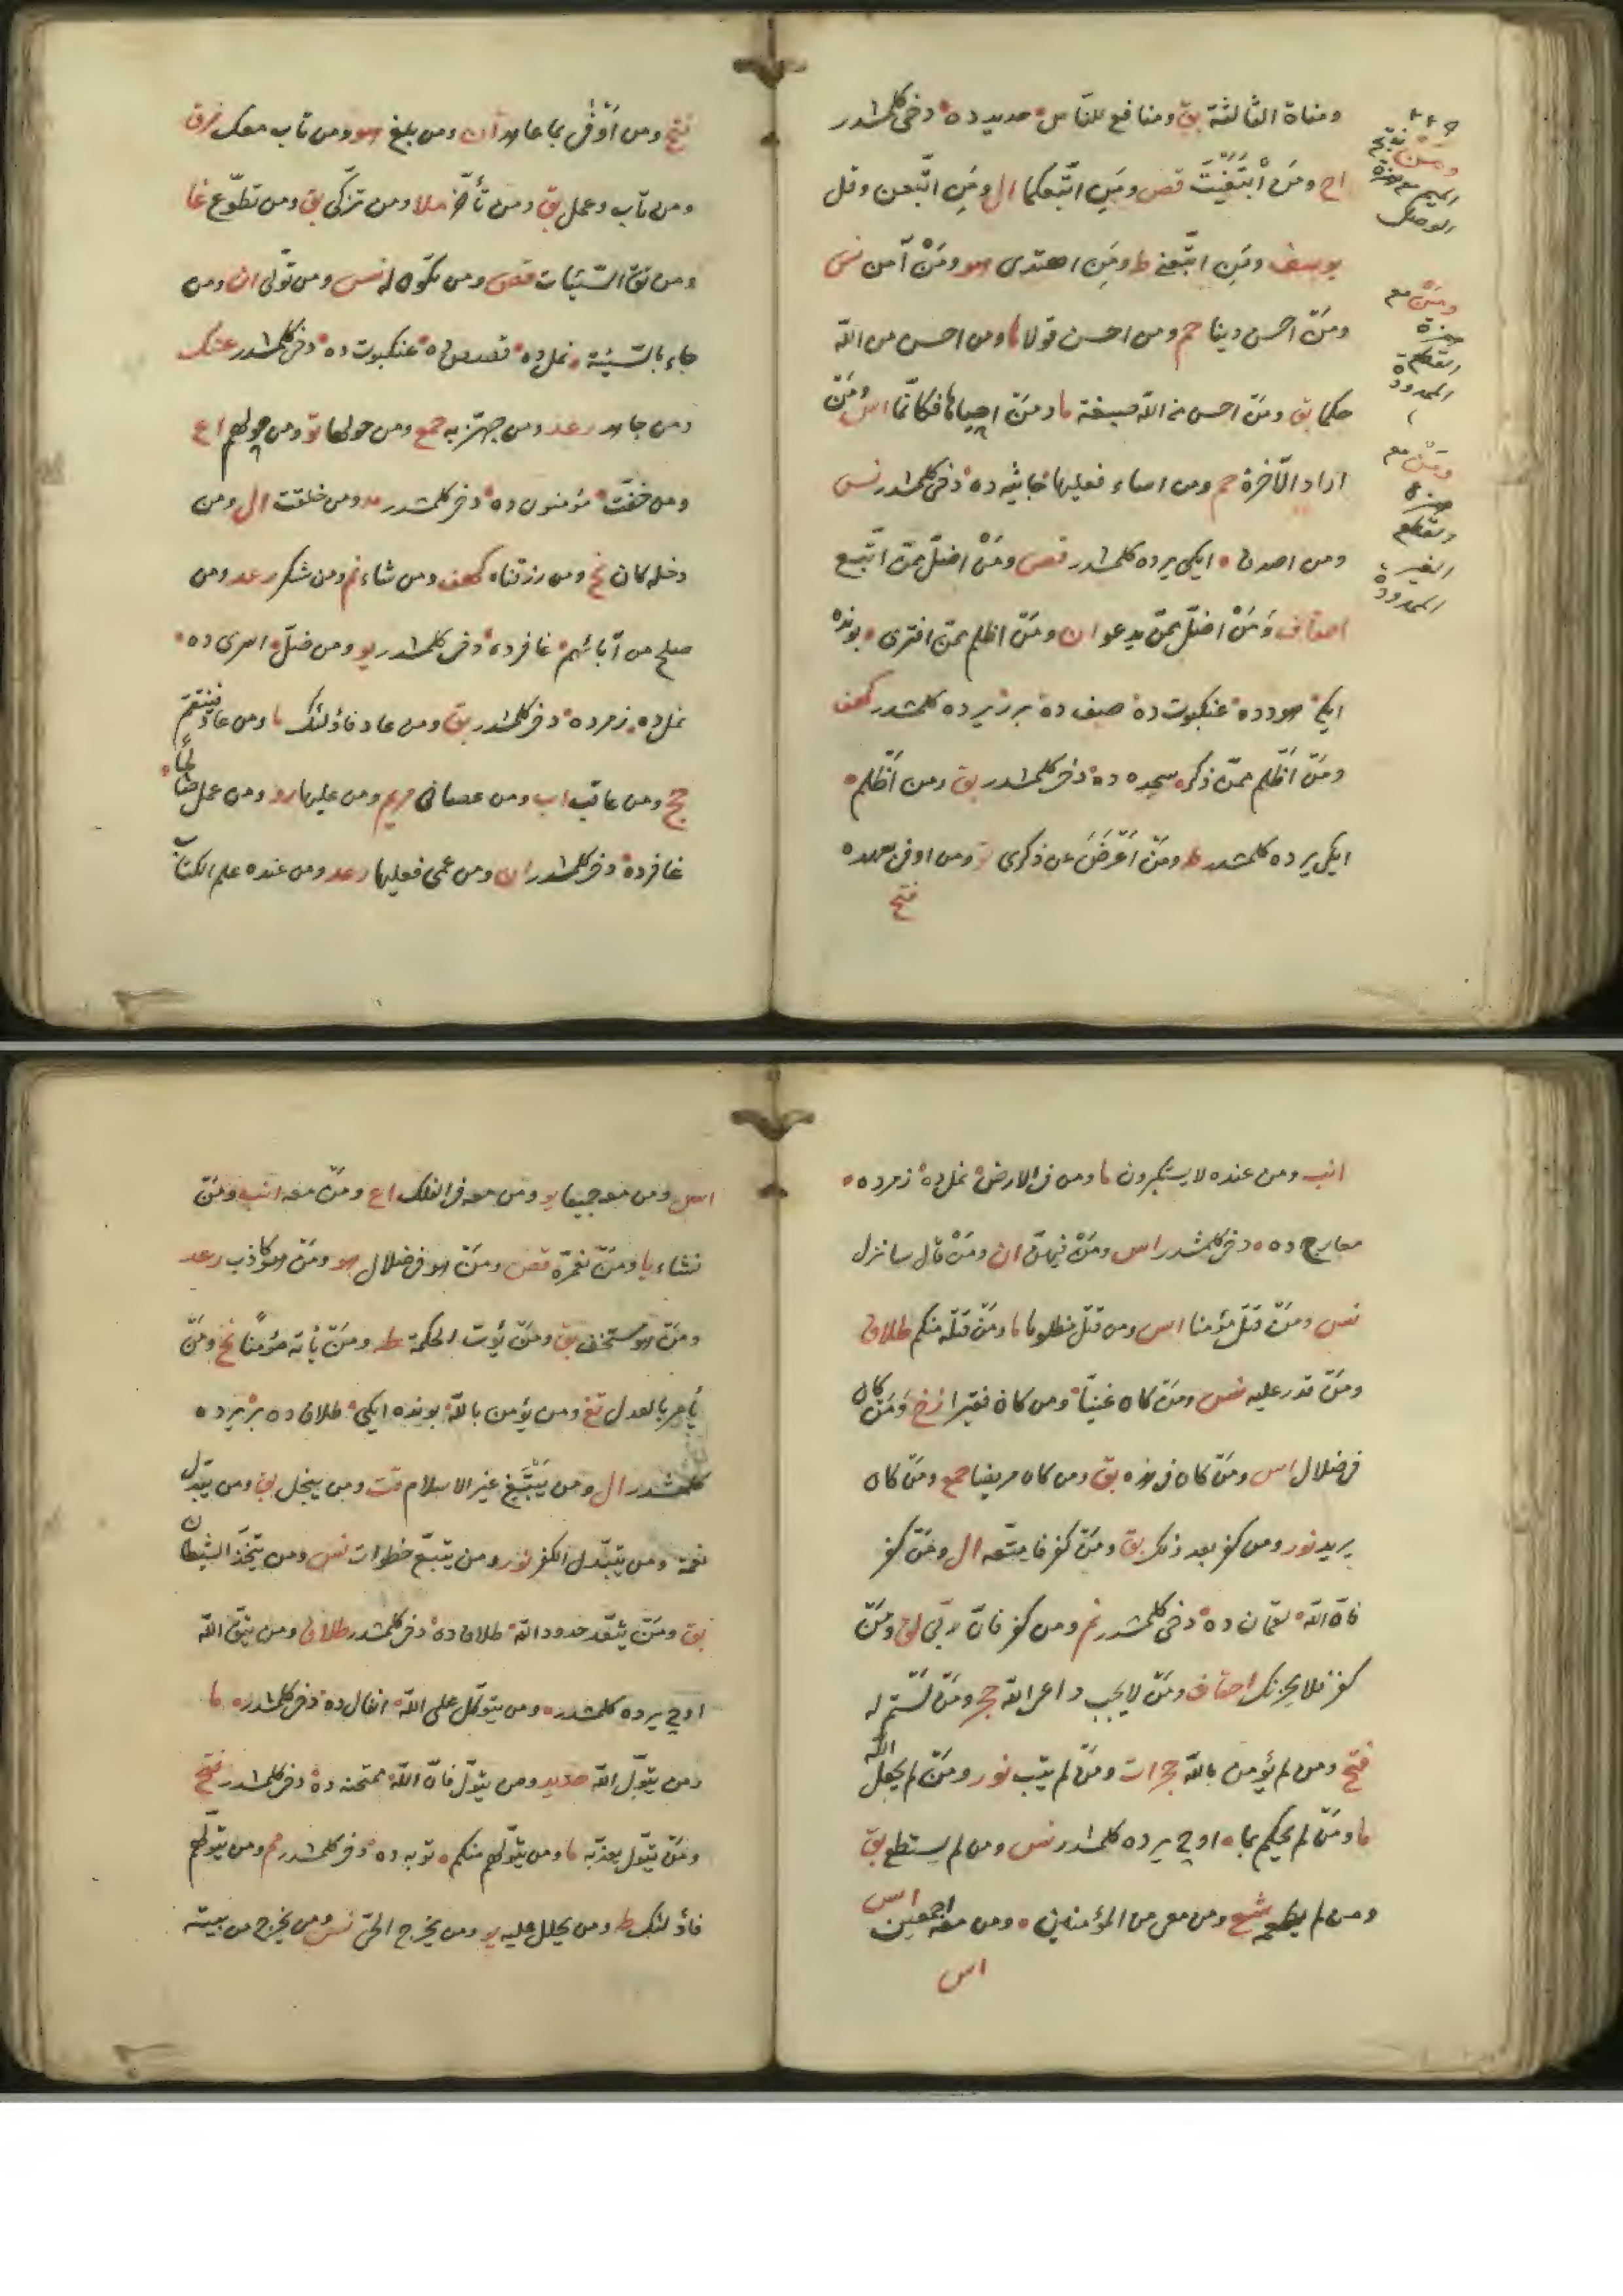 ومناة الثالثة بق ومنافع للناس حديد ده دخى كلمشدر
اح ومن ابتغيت قص ومن اتبعكما ال ومن اتبعن وقل
يوسف ومن اتبعنى ط ومن اهتدى هو ومن آمن نس
ومن احسن دينا حم ومن احسن قولا ما ومن احسن من الله
حكما بق ومن احسن من الله صبغة ما ومن احياها فكانما اس ومن
اراد الآخرة حم ومن اساء فعليها جاثيه ده دخى كلمشدر نس
ومن اصدق ايكى يرده كلمشدر قص ومن اضل ممن اتبع
احقاف ومن اضل ممن يدعو ان ومن اظلم ممن افترى بونده
ايكى هود ده عنكبوت ده صف ده بر يرده كلمشدر كهف
ومن اظلم ممن ذكر سجده ده دخى كلمشدر بق ومن اظلم
ايكى يرده كلمشدر ط ومن اعرض عن ذكرى ومن اوفى بعهده
فتح
ومن
الميم مع همزة
الوصل
ومن مع
همزة
القطع
الممدودة
ومن مع
همزة
القطع
الغير
الممدودة
فتح ومن اوفى بما عاهد ان ومن بلغ هو ومن تاب معك فرق
ومن تاب وعمل بق ومن تأخر ملا ومن تزكى بق ومن تطوع غا
ومن تق السيئات قص ومن تكون له نس ومن تولى ان ومن
جاء بالسيئة نمل ده قصص ده عنكبوت ده دخى كلمشدر عنك
ومن جاهد رعد ومن جهر به جمع ومن حولها تو ومن حولهم اع
ومن خفت مؤمنون ده دخى كلمشدر مد ومن خلقت ال ومن
دخله كان نح ومن رزقناه كهف ومن شاء نم ومن شكر رعد ومن
صلح من آبائهم غافر ده دخى كلمشدر يو ومن ضل اسرى ده
نمل ده زمر ده دخى كلمشدر بق ومن عاد فاولئك ما ومن عاد فينتقم
حج ومن عاقب اب ومن عصانى مريم ومن عليها رو ومن عمل صالحا
غافر ده دخى كلمشدر ان ومن عمى فعليها رعد ومن عنده علم الكتاب
انب ومن عنده لا يستكبرون ما ومن فى الارض نمل ده زمر ده
معارج ده دخى كلمشدر اس ومن فيهن ان ومن قال سانزل
نس ومن قتل مؤمنا اس ومن قتل مظلوما ما ومن قتله منكم طلاق
ومن قدر عليه نس ومن كان غنيا ومن كان فقيرا زخ ومن كان
فى ضلال اس ومن كان فى هذه بق ومن كان مريضا جمع ومن كان
يريد نور ومن كفر بعد ذلك بق ومن كفر فامتعه ال ومن كفر
فان الله لقمان ده دخى كلمشدر نم ومن كفر فان ربى لق ومن
كفر فلا يحزنك احقاف ومن لا يجب داعى الله حج ومن لستم له
فتح ومن لم يؤمن بالله حجرات ومن لم يتب نور ومن لم يجعل الله
ما ومن لم يحكم بما اوچ يرده كلمشدر نس ومن لم يستطع بق
ومن لم يطعمه شع ومن معى من المؤمنين ومن معه اجمعين اس
اس
اس ومن معه جميعا يو ومن معه فى الفلك اع ومن معه انب ومن
نشاء يا ومن نعمره قص ومن هو فى ضلال هو ومن هو كاذب رعد
ومن هو مستخف بق ومن يؤت الحكمة ط ومن يأته مؤمنا نح ومن
يأمر بالعدل تغ ومن يؤمن بالله بونده ايكى طلاق ده بر يرده
كلمشدر ال ومن يبتغ غير الاسلام قت ومن يبخل بق ومن يبدل
نعمة ومن يتبدل الكفر نور ومن يتبع خطوات نس ومن يتخذ الشيطان
بق ومن يتعد حدود الله طلاق ده دخى كلمشدر طلاق ومن يتق الله
اوچ يرده كلمشدر ومن يتوكل على الله انفال ده دخى كلمشدر ما
ومن يتول الله حديد ومن يتول فان الله ممتحنه ده دخى كلمشدر فتح
ومن يتول يعذبه ما ومن يتولهم منكم توبه ده دخى كلمشدر حم ومن يتولهم
فاولئك ط ومن يحلل عليه يو ومن يخرج الحى نس ومن يخرج من بيته